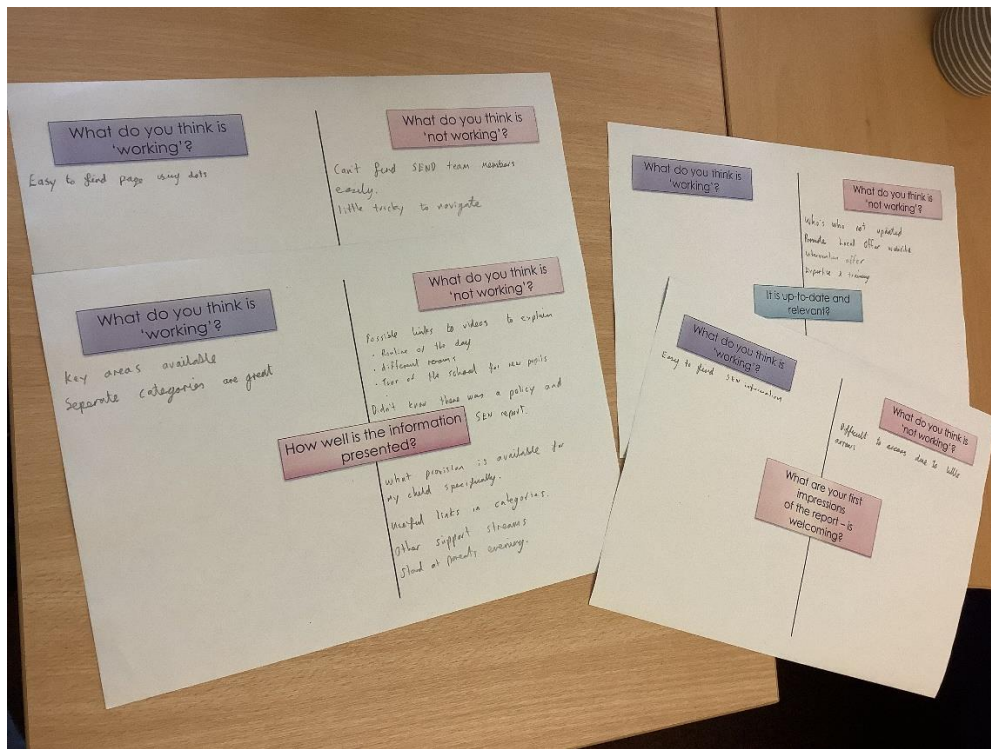 What do you think is
'working'?
Easy to find page using dots
What do you think is
'not working'?
Can't find SEND team members
easily.
little tricky to navigate
What do you think is
'working'?
Key areas available
Separate categories are great
What do you think is
'not working'?
Possible links to videos to explain
· Routine of the day
· different rooms
· Tour of the school for new pupils
Didn't know there was a policy and
SEN report.
How well is the information
presented?
What provision is available for
my child specifically.
Useful links in categories.
Other support streams
Stand at parents evening.
What do you think is
'working'?
What do you think is
'not working'?
Who's who not updated
Provide Local Offer website
Intervention offer
Expertise & training
It is up-to-date and
relevant?
What do you think is
'working'?
Easy to find SEN information
What do you think is
'not working'?
Difficult to access due to
errors
What are your first
impressions
of the report – is
welcoming?